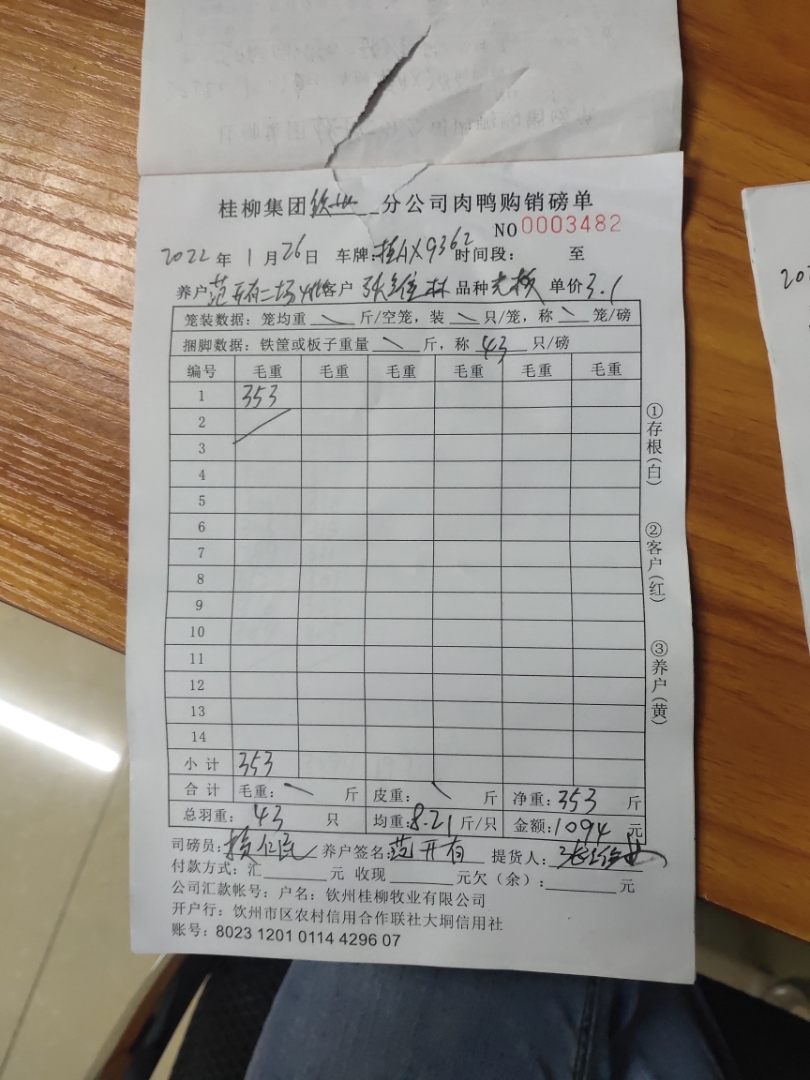 桂柳集团钦州分公司肉鸭购销磅单
NO 0003482
2022年1月26日 车牌:桂AX9362 时间段: 至
养户范开有二场 客户 张 林 品种 单价3.1
笼装数据:笼均重 \ 斤/空笼,装 \ 只/笼,称 \ 笼/磅
捆脚数据:铁筐或板子重量 \ 斤,称 43 只/磅
编号 毛重 毛重 毛重 毛重 毛重 毛重
1 353
2
3
4
5
6
7
8
9
10
11
12
13
14
小计 353
合计 毛重: \ 斤 皮重: \ 斤 净重:353 斤
总羽重: 43 只 均重:8.21斤/只 金额:1094元
司磅员: 仁民 养户签名:范开有 提货人:
付款方式:汇 元 收现 元欠(余): 元
公司汇款帐号:户名:钦州桂柳牧业有限公司
开户行:饮州市区农村信用合作联社大垌信用社
账号:8023 1201 0114 4296 07
①存根(白)
②客户(红)
③养户(黄)